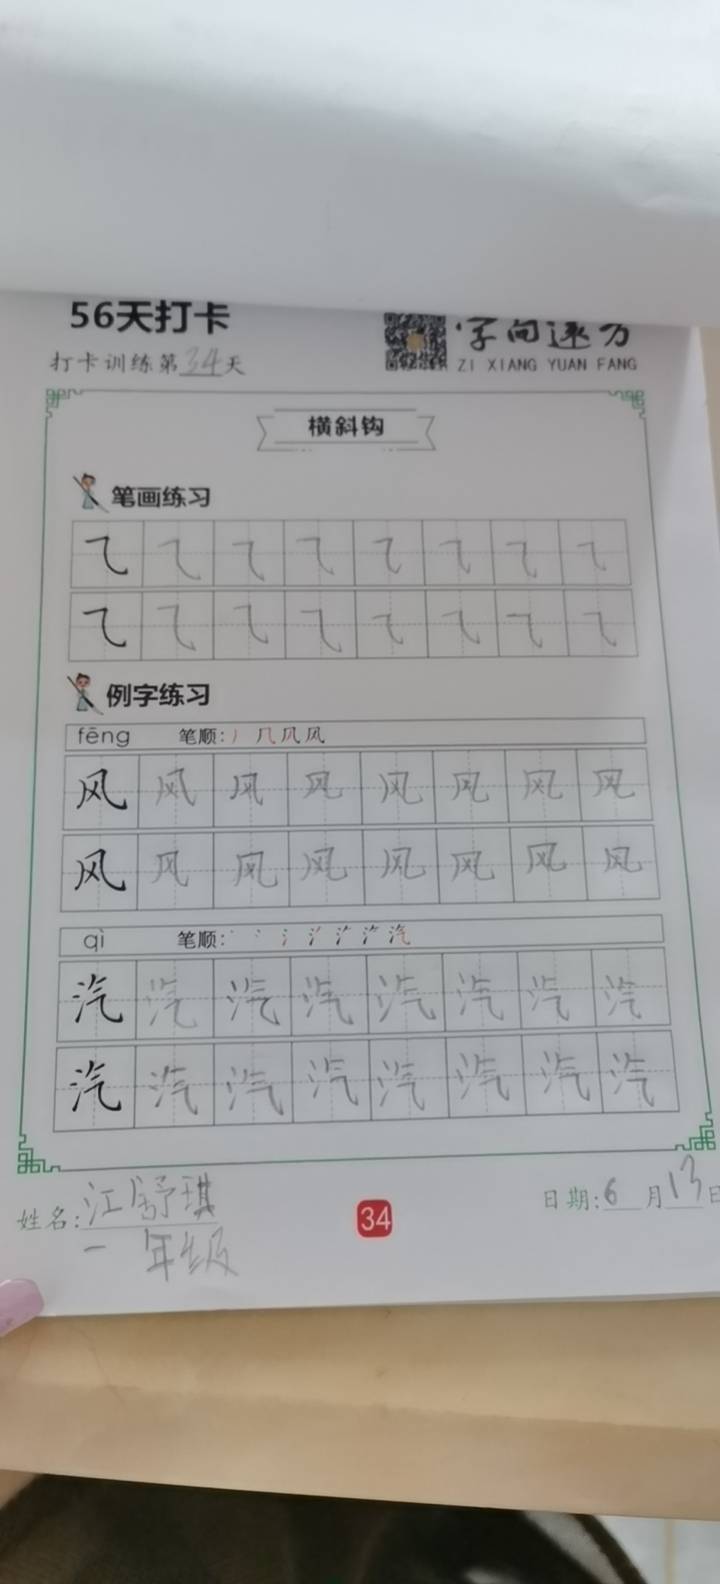 56天打卡
字向速方
ZI XIANG YUAN FANG
打卡训练第34天
横斜钩
笔画练习
㇈ ㇈ ㇈ ㇈ ㇈ ㇈ ㇈ ㇈
㇈ ㇈ ㇈ ㇈ ㇈ ㇈ ㇈ ㇈
例字练习
fēng 笔顺:
风 风 风 风 风 风 风 风
风 风 风 风 风 风 风 风
qì 笔顺:
汽 汽 汽 汽 汽 汽 汽 汽
汽 汽 汽 汽 汽 汽 汽 汽
姓名:江舒琪
一年级
34
日期:6月13日